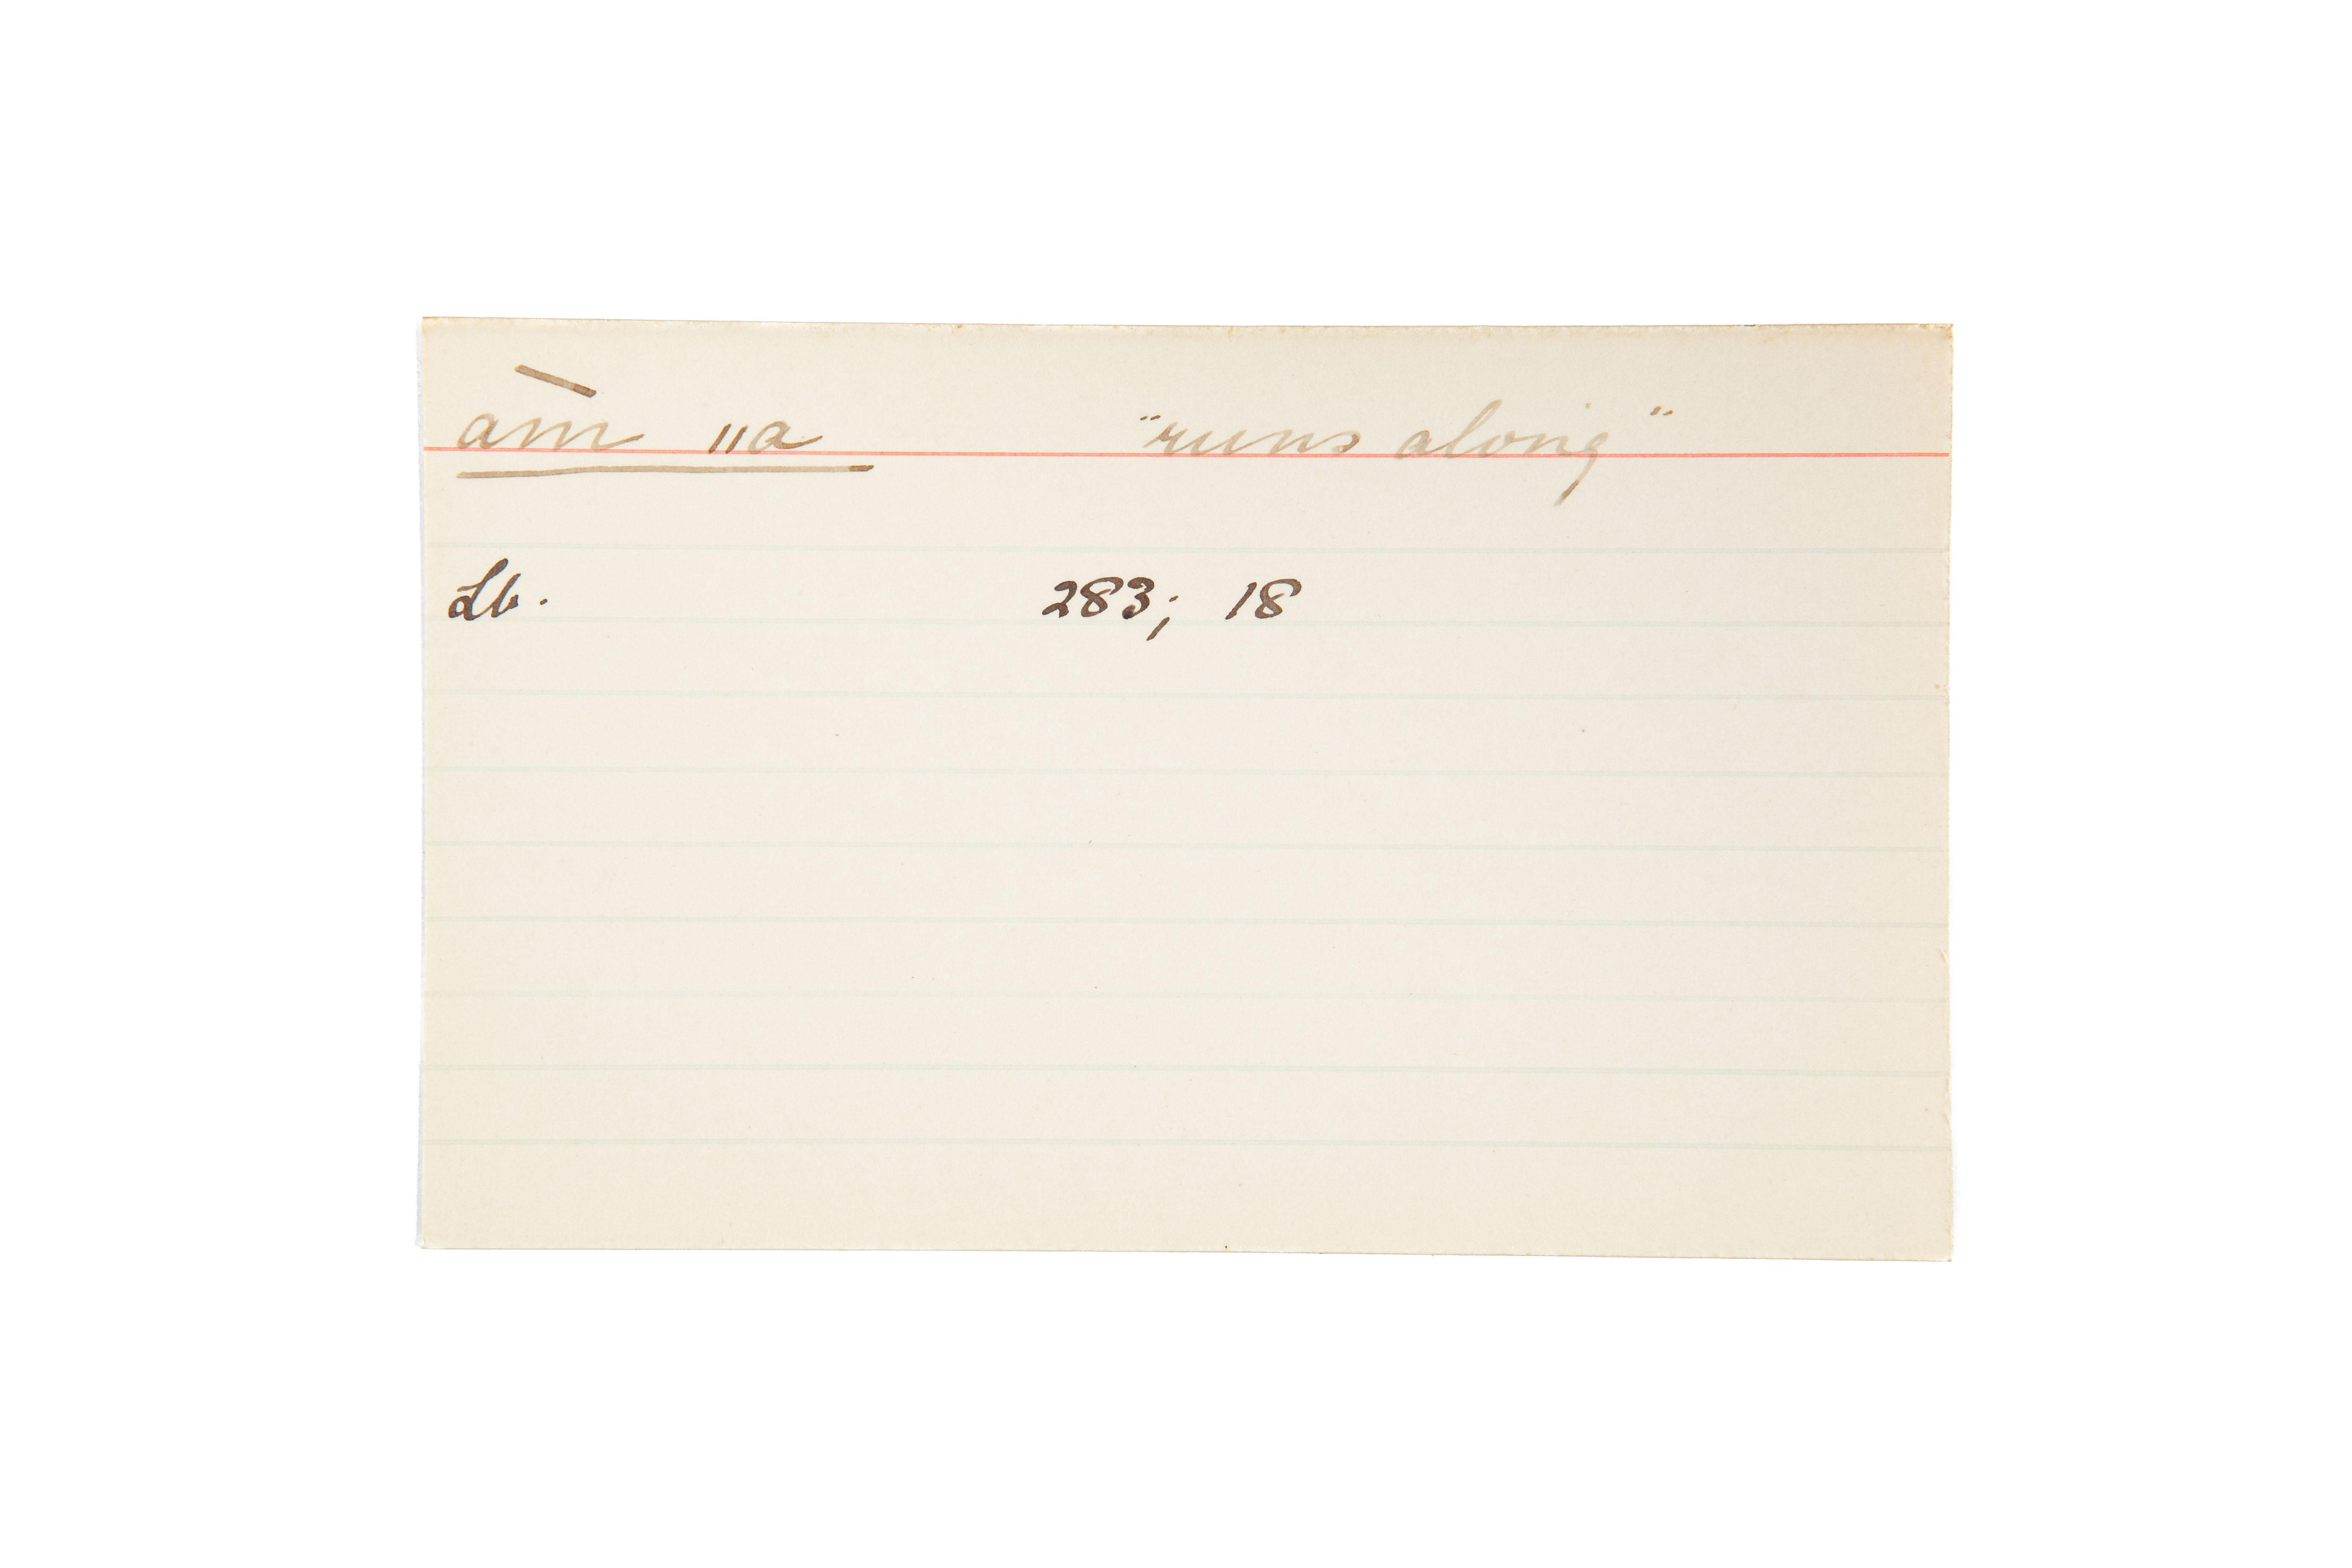 àm ǁa "runs along"
Lb. 283; 18